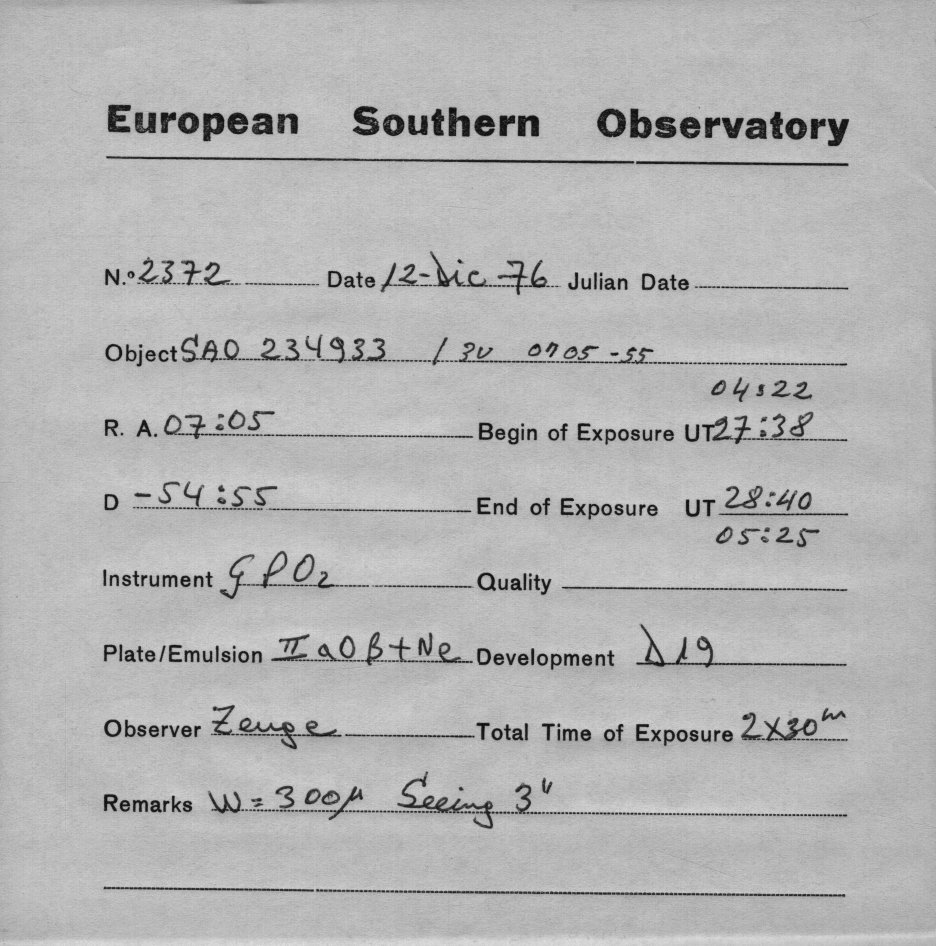 European Southern Observatory
N.º 2372 Date 12-Dic-76 Julian Date
Object SAO 234933 / 3U 0705-55
04:22
R. A. 07:05 Begin of Exposure UT 27:38
D -54:55 End of Exposure UT 28:40
05:25
Instrument GPO2 Quality
Plate/Emulsion IIaOβ+Ne Development D19
Observer Zeuge Total Time of Exposure 2x30m
Remarks W=300μ Seeing 3"